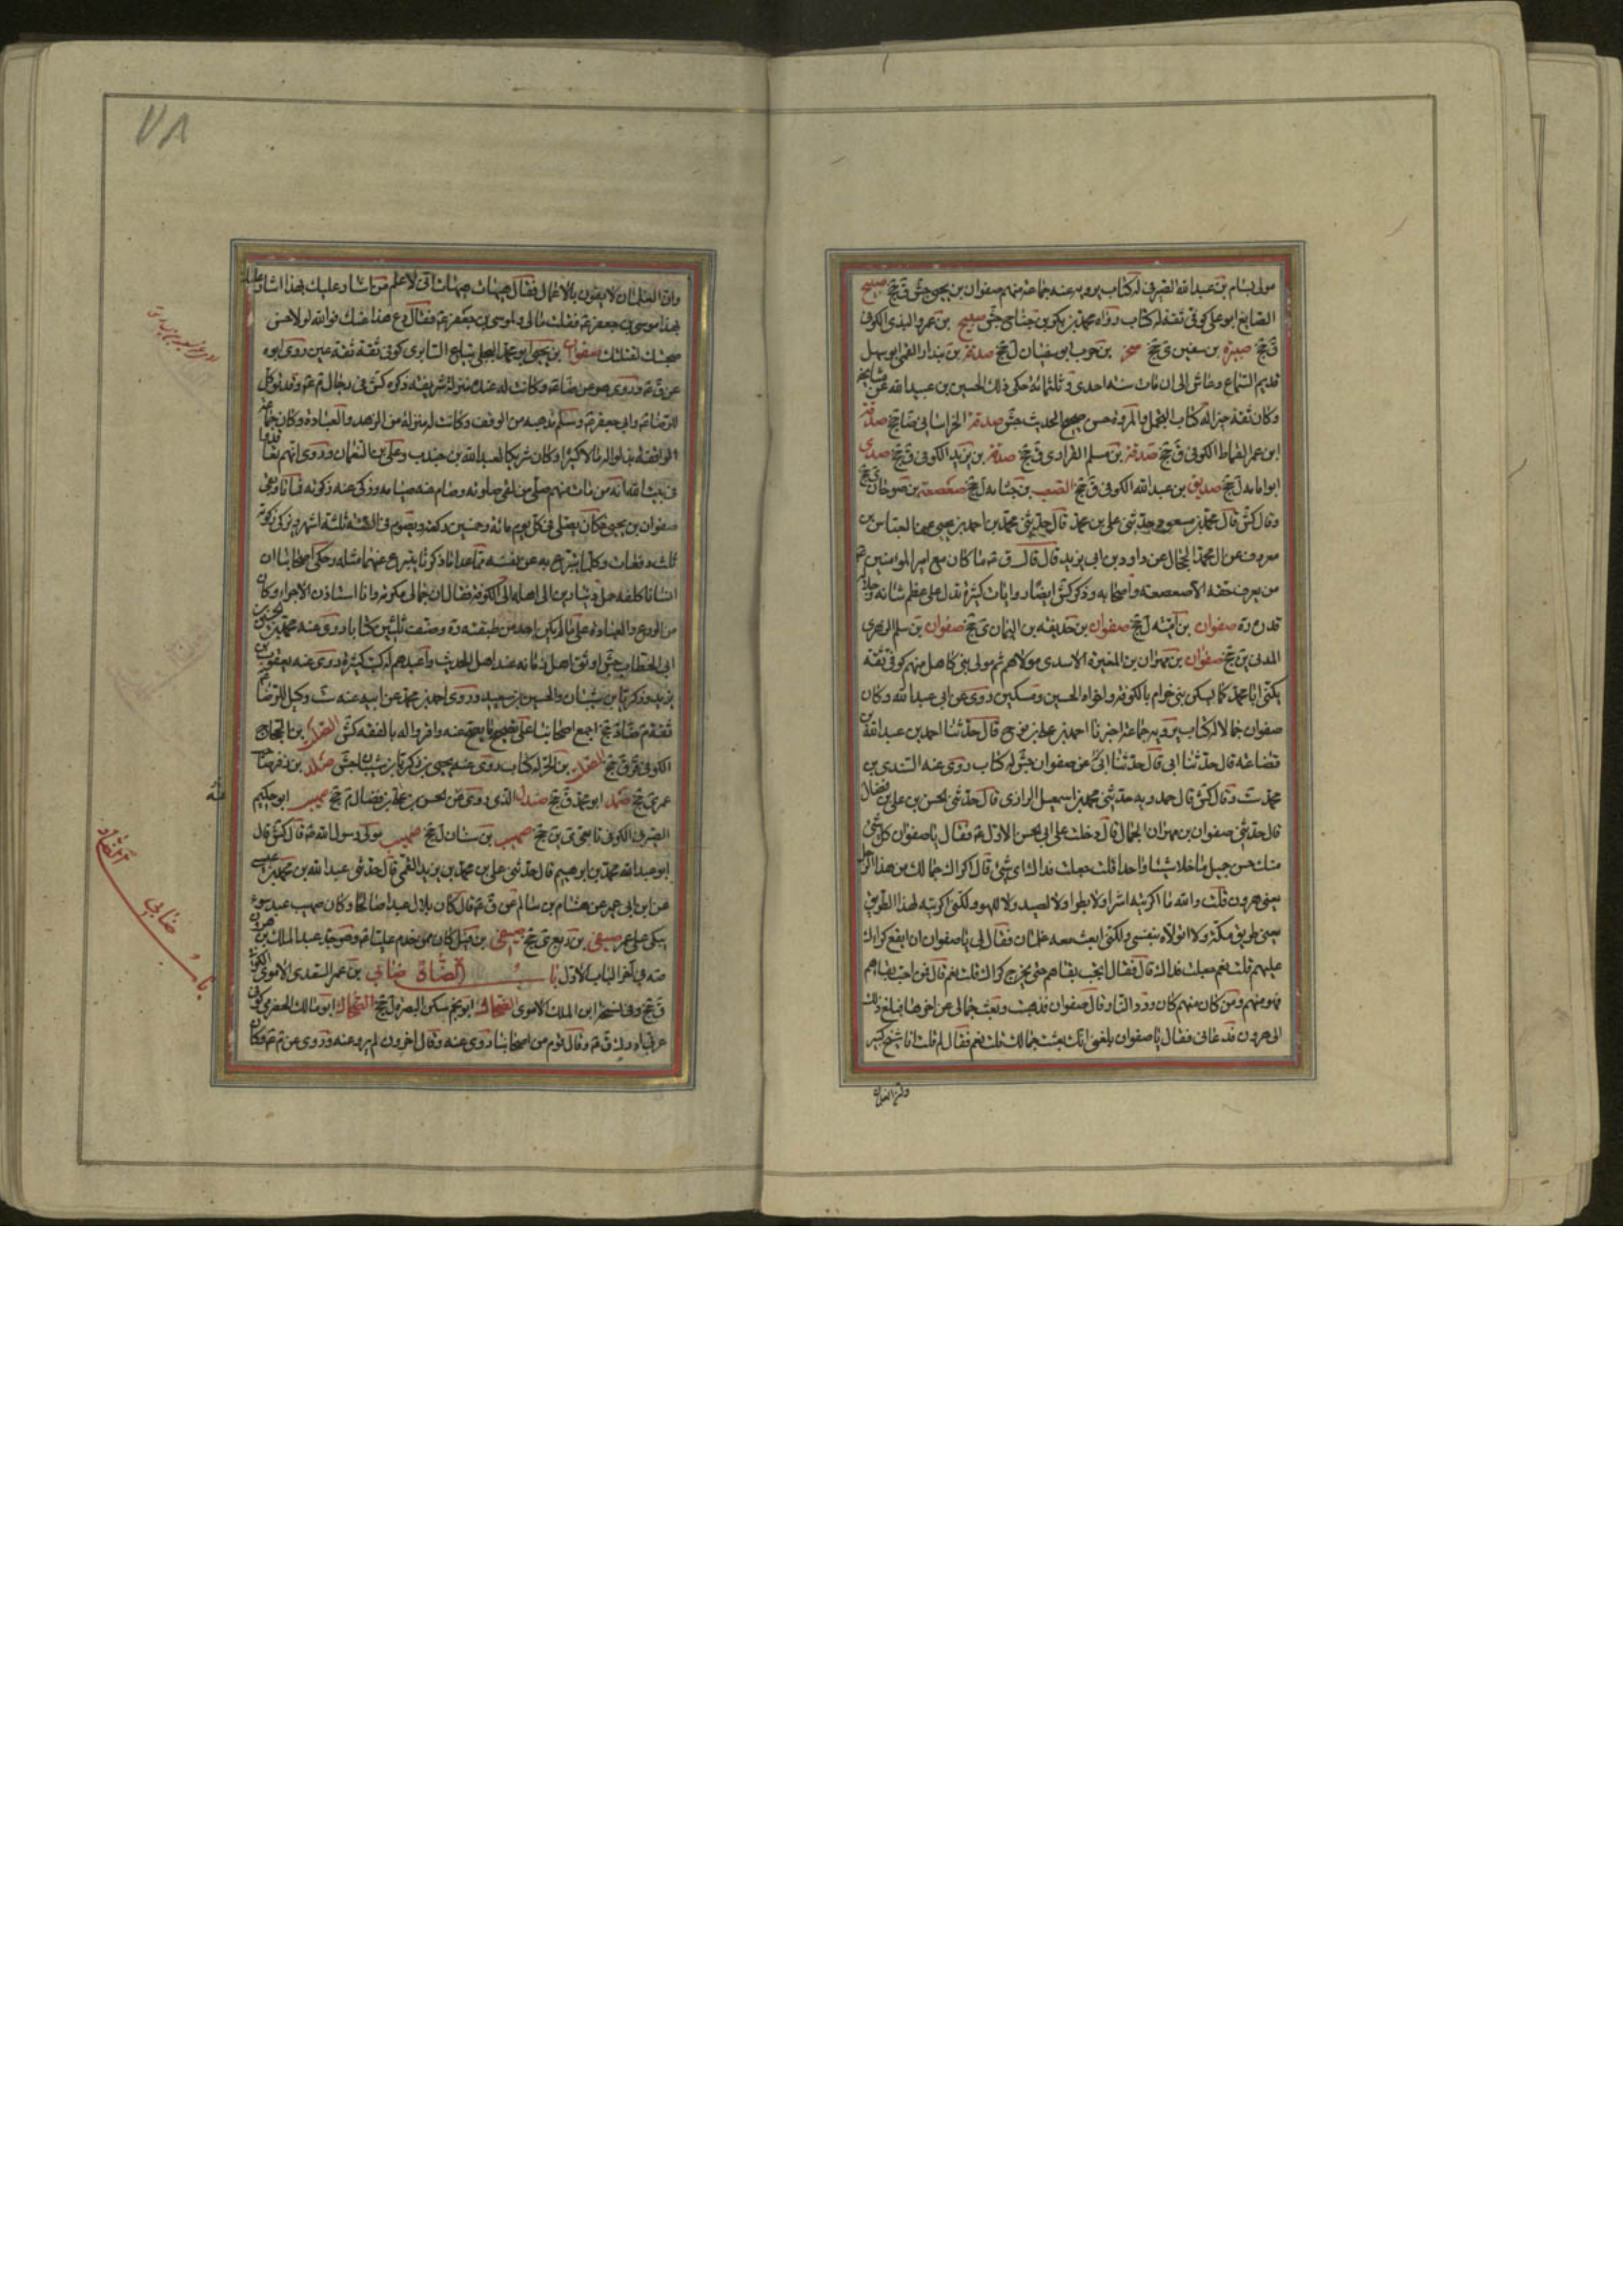 مولى بسام بن عبد الله الصيرفى له كتاب يرويه عنه جماعة منهم صفوان بن يحيى جش ق جخ صبيح
الصايغ ابو على كوفى ثقة له كتاب رواه محمد بن بكر بن جناح جش صبيح بن عمرو البذى الكوفى
ق جخ صبرة بن سفين ى جخ صخر بن حرب ابو سفيان ل جخ صدقة بن بندار القمى ابو سهل
قديم السماع وعاش الى ان مات سنه احدى و ثلثمائة حكى ذلك الحسين بن عبيد الله عن مشايخه
وكان ثقة خيرا له كتاب التجمل والمروة حسن صحيح الحديث جش صدقة الخراسانى ضا جخ صدقة
ابن عمر القماط الكوفى ق جخ صدقة بن مسلم الفزارى ق جخ صدقة بن يزيد الكوفى ق جخ صدى
ابو امامه ل جخ صديق بن عبد الله الكوفى ق جخ الصعب بن جثامه ل جخ صعصعة بن صوحان ى جخ
وقال كش قال محمد بن مسعود حدثنى على بن محمد قال حدثنى محمد بن احمد بن يحيى عن العباس بن
معروف عن ابى محمد الحجال عن داود بن ابى يزيد قال قال ق عم ما كان مع امير المؤمنين عم
من يعرف حقه الا صعصعة واصحابه وذكر كش ايضا روايات كثيرة تدل على عظم شانه وجلالة
قدره صفوان بن امية ل جخ صفوان بن حذيفه بن اليمان ى جخ صفوان بن سليم الزهرى
المدنى ين جخ صفوان بن مهران بن المغيرة الاسدى مولاهم ثم مولى بنى كاهل منهم كوفى ثقة
يكنى ابا محمد كان يسكن بنى حرام بالكوفة واخواه الحسين ومسكين روى عن ابى عبد الله وكان
صفوان جمالا له كتاب يرويه جماعة اخبرنا احمد بن على بن نوح قال حدثنا احمد بن عبد الله بن
قضاعة قال حدثنا ابى قال حدثنا ابى عن صفوان جش له كتاب روى عنه السندى بن
محمد ست وقال كش قال حمدويه حدثنى محمد بن اسمعيل الرازى قال حدثنى الحسن بن على بن فضال
قال حدثنى صفوان بن مهران الجمال قال دخلت على ابى الحسن الاول عم فقال يا صفوان كل شئ
منك حسن جميل ما خلا شيئا واحدا قلت جعلت فداك اى شئ قال اكراك جمالك من هذا الرجل
يعنى هرون قلت والله ما اكريته اشرا ولا بطرا ولا لصيد ولا للهو ولكنى اكريته لهذا الطريق
يعنى طريق مكة ولا اتولاه بنفسى ولكنى ابعث معه غلمان فقال لى يا صفوان ايقع كراءك
عليهم قلت نعم جعلت فداك قال فقال اتحب بقاهم حتى يخرج كراك قلت نعم قال فمن احب بقاهم
فهو منهم ومن كان منهم كان ورد النار قال صفوان فذهبت وبعت جمالى عن اخرها فبلغ ذلك
الى هرون فدعانى فقال يا صفوان بلغنى انك بعت جمالك قلت نعم فقال لم قلت انا شيخ كبير
وان الغلمان
٧٨
وان الغلمان لا يفون بالاعمال فقال هيهات هيهات انى لاعلم من اشار عليك بهذا اشار عليك
بهذا موسى بن جعفر عم فقلت مالى ولموسى بن جعفر عم فقال دع هذا عنك فوالله لولا حسن
صحبتك لقتلتك صفوان بن يحيى ابو محمد البجلى بياع السابرى كوفى ثقة ثقة عين روى ابوه
عن ق عم وروى هو عن ضا عم وكانت له عنده منزلة شريفة ذكره كش فى رجال م عم وقد توكل
للرضا عم وابى جعفر عم وسلم مذهبه من الوقف وكانت له منزلة من الزهد والعبادة وكان جماعة
الواقفة بذلوا له مالا كثيرا وكان شريكا لعبد الله بن جندب وعلى بن النعمان وروى انهم تعاقدوا
فى بيت الله انه من مات منهم صلى من بقى صلوته وصام عنه صيامه وزكى عنه زكوته فماتا وبقى
صفوان بن يحيى فكان يصلى فى كل يوم مائة وخمسين ركعة ويصوم فى السنة ثلثة اشهر ويزكى زكوته
ثلث دفعات وكلما يتبرع به عن نفسه مما عدا ما ذكرنا يتبرع عنهما مثله وحكى اصحابنا ان
انسانا كلفه حمل دينارين الى اهله الى الكوفة فقال ان جمالى مكرية وانا استاذن الاجراء وكان
من الورع والعبادة على ما لم يكن احد من طبقته ره وصنف ثلثين كتابا روى عنه محمد بن الحسين بن
ابى الخطاب جش اوثق اهل زمانه عند اهل الحديث واعبدهم له كتب كثيرة روى عنه يعقوب بن
يزيد وذكريا بن شيبان والحسين بن سعيد وروى احمد بن محمد عن ابيه عنه ست وكيل الرضا عم
ثقة م ضا د جخ اجمع اصحابنا على تصحيح ما يصح عنه واقروا له بالفقه كش الصقر بن الحجاج
الكوفى ق جخ
عمر ى جخ صمد ابو محمد ق جخ صندل الذى روى عن الحسن بن على بن فضال م جخ صهيب ابو حكيم
الصيرفى الكوفى ين جخ صهيب بن سنان ل جخ صهيب مولى رسول الله عم قال كش قال
ابو عبد الله محمد بن ابرهيم قال حدثنى على بن محمد بن يزيد القمى قال حدثنى عبد الله بن محمد بن عيسى
عن ابن ابى عمير عن هشام بن سالم عن ق عم قال كان بلال عبدا صالحا وكان صهيب عبد سوء
يبكى على عمر صيفى بن ربعى ى جخ صيفى بن فسيل كان ممن خدم عليا عم وهو جد عبد الملك بن هرون
صه فى اخر الباب الاول باب الضاد ضابى بن عمر السعدى الاموى الكوفى
ق جخ وفى نسخة ابن الملك الاموى الضحاك ابو بحر سكن البصرة ل جخ الضحاك ابو مالك الحضرمى كوفى
عربى ادرك ق عم وقال قوم من اصحابنا روى عنه وقال اخرون لم يرو عنه وروى عن م عم وكان
باب الضاد
ضابى